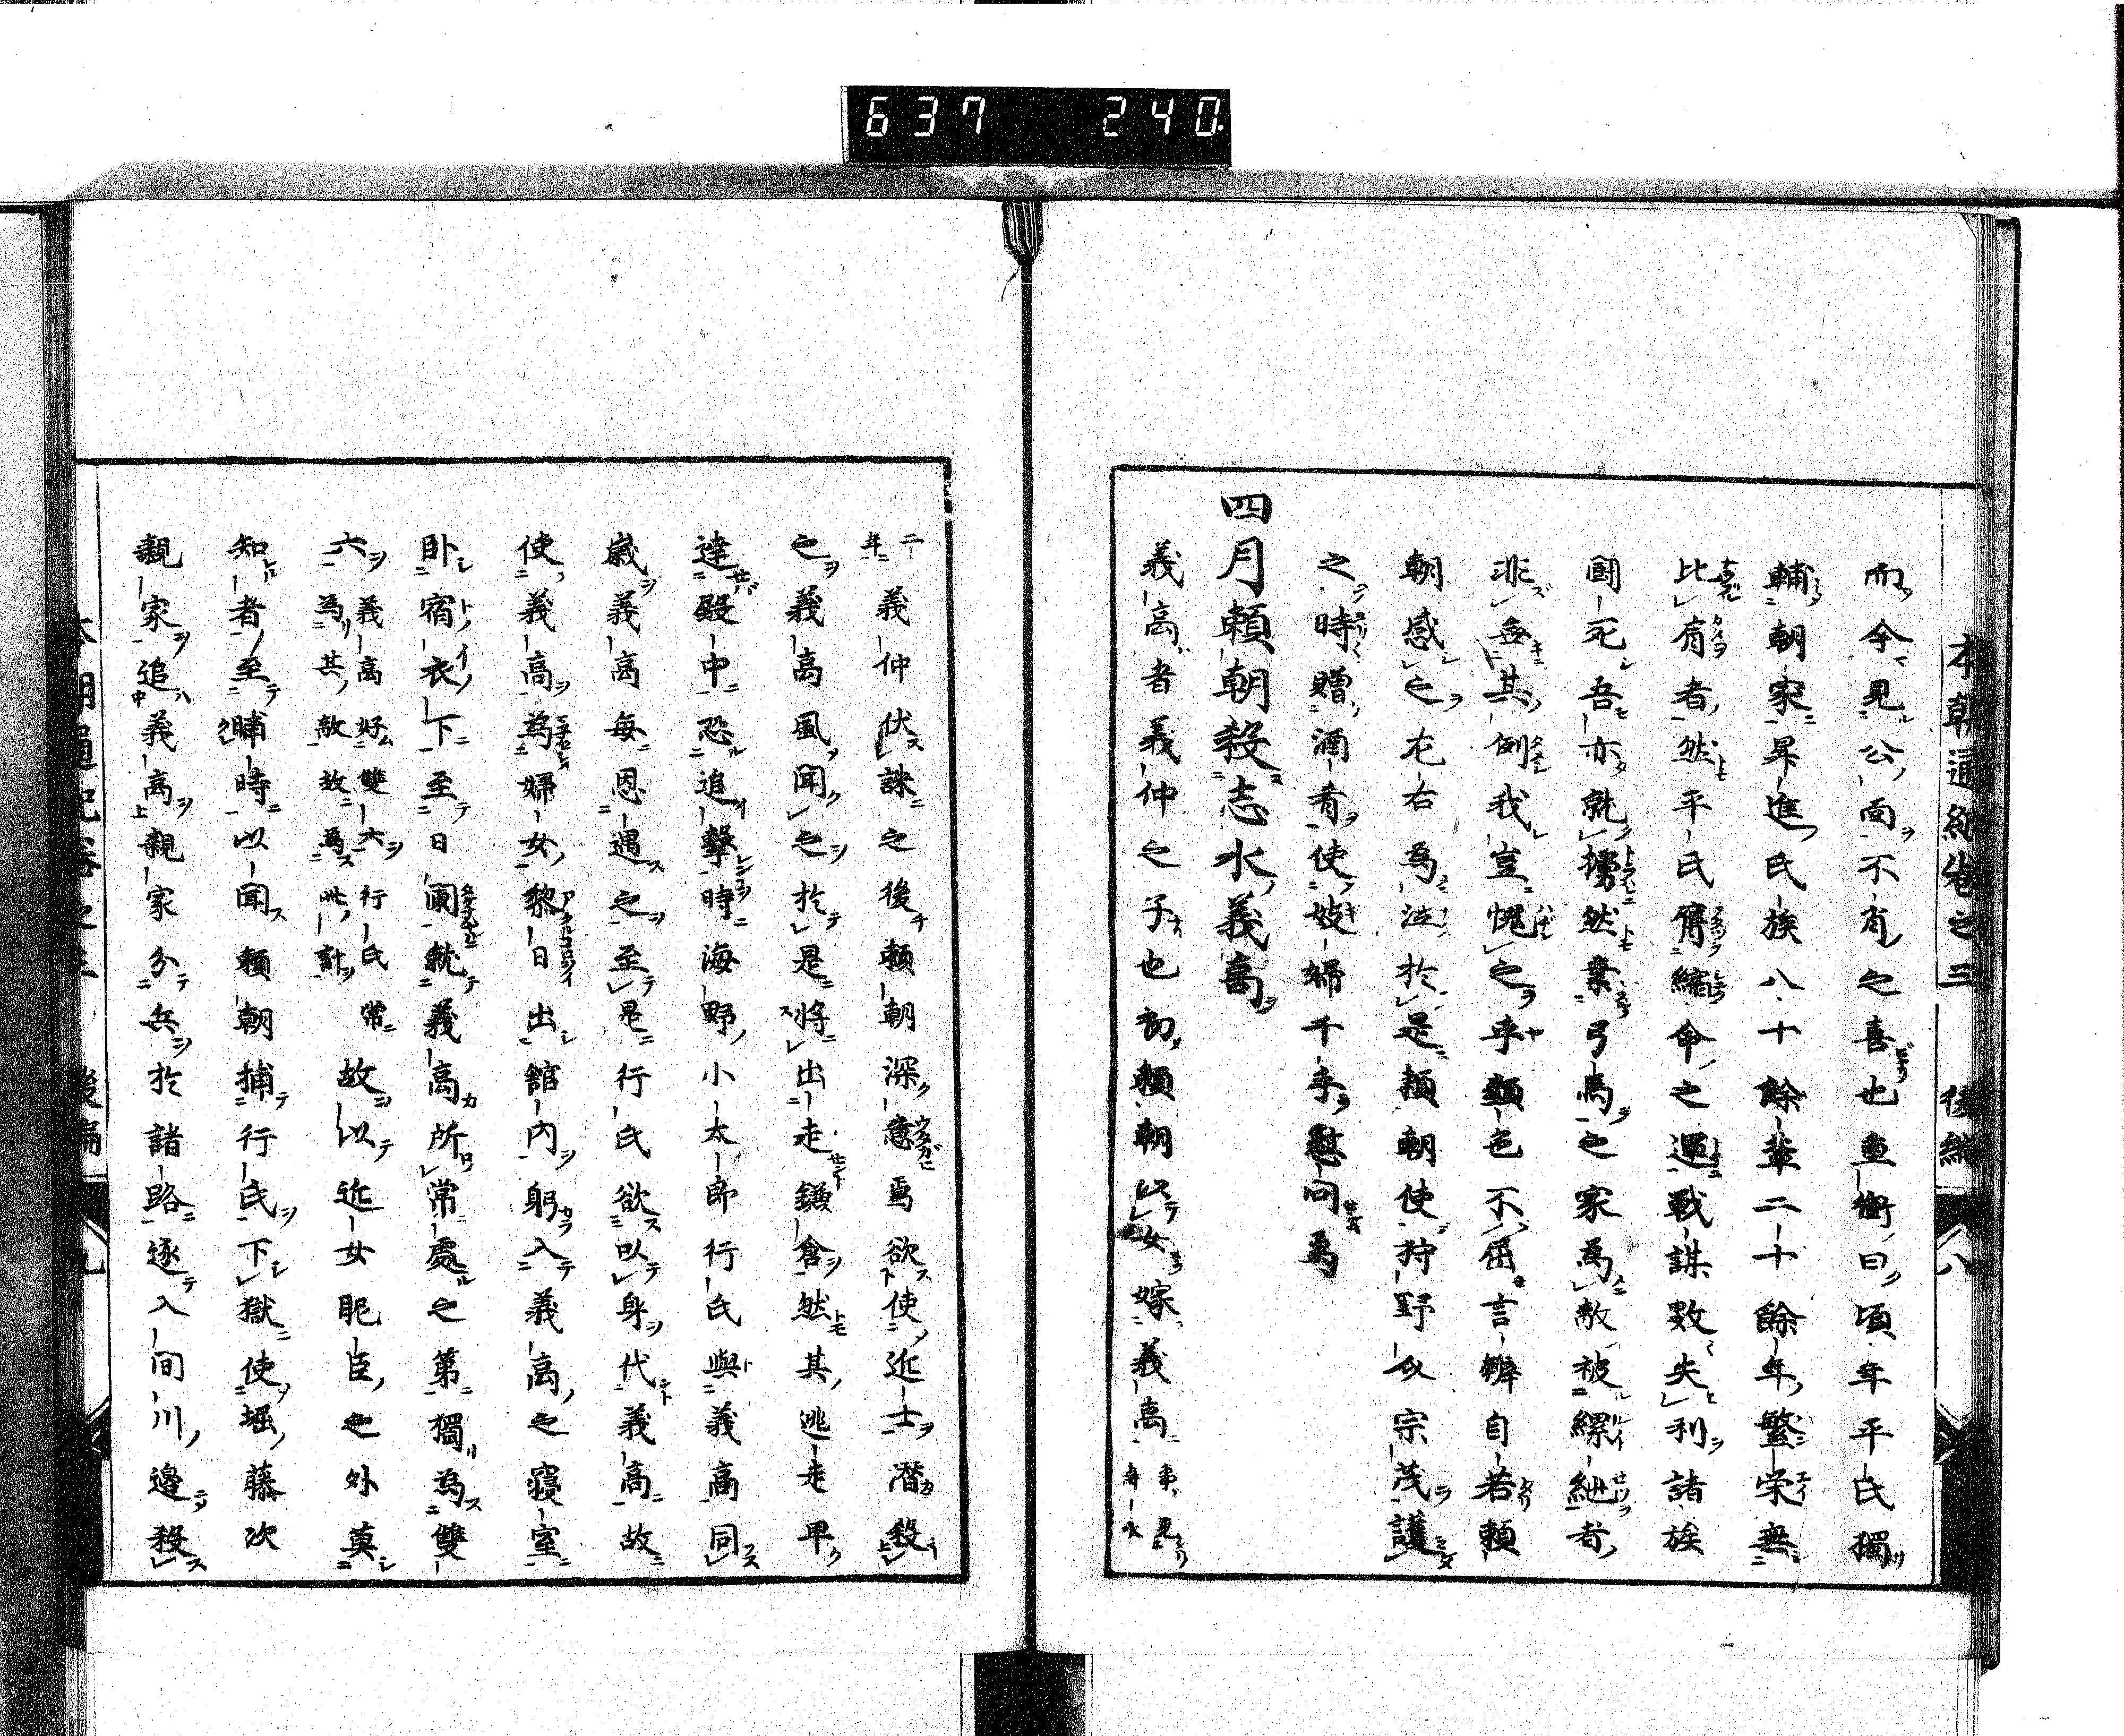 637 240.
本朝通紀卷之三 後編 八
而今見公面不肖之喜也重衡曰頃年平氏獨
輔朝家昇進氏族八十餘輩二十餘年繁栄無
比肩者然平氏臂縮命之運戰謀數失利諸族
囯死吾亦就擄然棄弓馬之家為敵被縲紲者
非無其例我豈愧之乎顔色不屈言辨自若頼
朝感之左右為泣於是頼朝使狩野以宗茂護
之時贈酒肴使妓婦千手慰問焉
四月頼朝殺志水義高
義高者義仲之子也初頼朝以女嫁義高 事見壽永
二年 義仲伏誅之後頼朝深意焉欲使近士潛殺
之義高風聞之於是將出走鎌倉然其逃走早
達殿中恐追擊時海野小太郎行氏與義高同
歳義高毎恩遇之至是行氏欲以身代義高故
使義高為婦女黎日出舘内躬入義高之寝室
卧宿衣下至日闌就義高所常處之第獨為雙
六 義高好雙六行氏常為其敵故為此計 故以近女昵臣之外莫
知者至晡時以聞頼朝捕行氏下獄使堀藤次
親家追義高親家分兵於諸路逐入間川邊殺
本朝通紀卷之三 後編 九